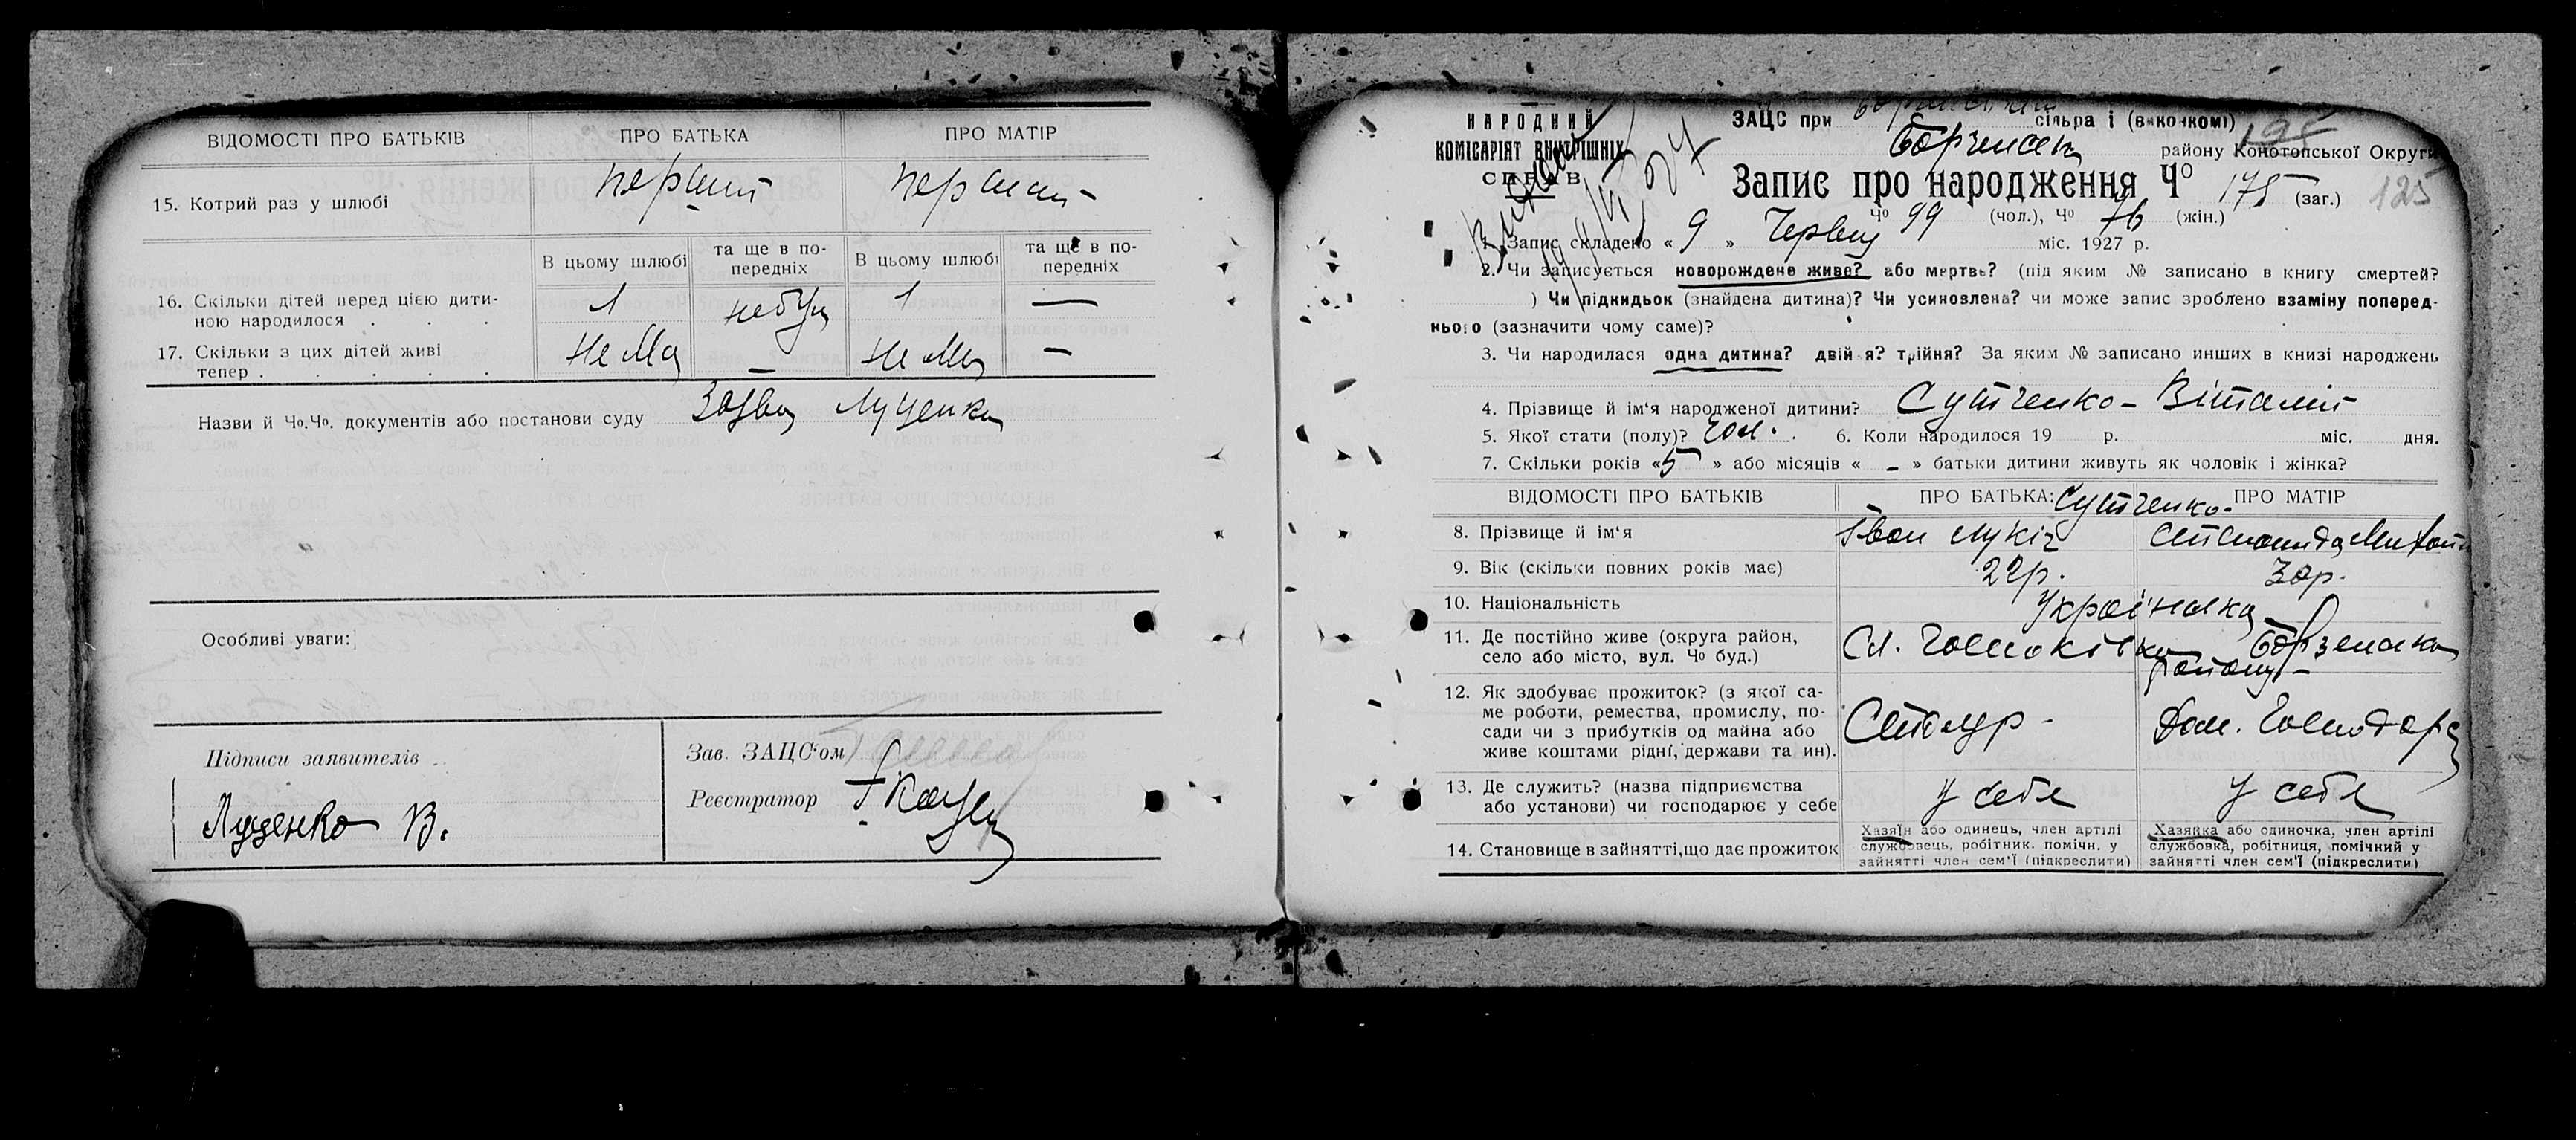 ВІДОМОСТІ ПРО БАТЬКІВ ПРО БАТЬКА ПРО МАТІР
15. Котрий раз у шлюбі перший
В цьому шлюбі та ще в по-передніх В цьому шлюбі та ще в по-передніх
16. Скільки дітей перед цією дити-
ною народилося . . . 1 небул 1 —
17. Скільки з цих дітей живі
тепер . . . . . Не Ма — Не Ма —
Назви й Чо.Чо. документів або постанови суду Заява Луценка
Особливі уваги:
Підписи заявителів
Зав. ЗАЦС'ом
Реєстратор
Луценко В.
НАРОДНИЙ
КОМІСАРІЯТ ВНУТРІШНІХ
СПРАВ
ЗАЦС при сільра і (виконкомі) 195
району Конотопської Округи
Запис про народження Чо 175 (заг.) 125
Чо 99 (чол.), Чо 76 (жін.)
1. Запис складено « 9 » Червня міс. 1927 р.
2. Чи записується новорождене живе? або мертве? (під яким № записано в книгу смертей?
) Чи підкидьок (знайдена дитина)? Чи усиновлена? чи може запис зроблено взаміну поперед-
нього (зазначити чому саме)?
3. Чи народилася одна дитина? двійня? трійня? За яким № записано инших в книзі народжень
4. Прізвище й ім'я народженої дитини? Сутченко - Віталій
5. Якої стати (полу)? чол. 6. Коли народилося 19 р. міс. дня.
7. Скільки років «5» або місяців « - » батьки дитини живуть як чоловік і жінка?
ВІДОМОСТІ ПРО БАТЬКІВ ПРО БАТЬКА: Сутченко - ПРО МАТІР
8. Прізвище й ім'я Іван Лукіч
9. Вік (скільки повних років має) 22р. 30р.
10. Національність Українська
11. Де постійно живе (округа район,
село або місто, вул. Чо буд.) Сл. Борзенська району -
12. Як здобуває прожиток? (з якої са-
ме роботи, ремества, промислу, по-
сади чи з прибутків од майна або
живе коштами рідні, держави та ин). Столяр - Дом. Господарс
13. Де служить? (назва підприємства
або установи) чи господарює у себе У себе У себе
14. Становище в зайнятті, що дає прожиток
Хазяїн або одинець, член артілі
службовець, робітник. помічн. у
зайнятті член сем'ї (підкреслити)
Хазяйка або одиночка, член артілі
службовка, робітниця, помічний у
зайнятті член сем'ї (підкреслити)